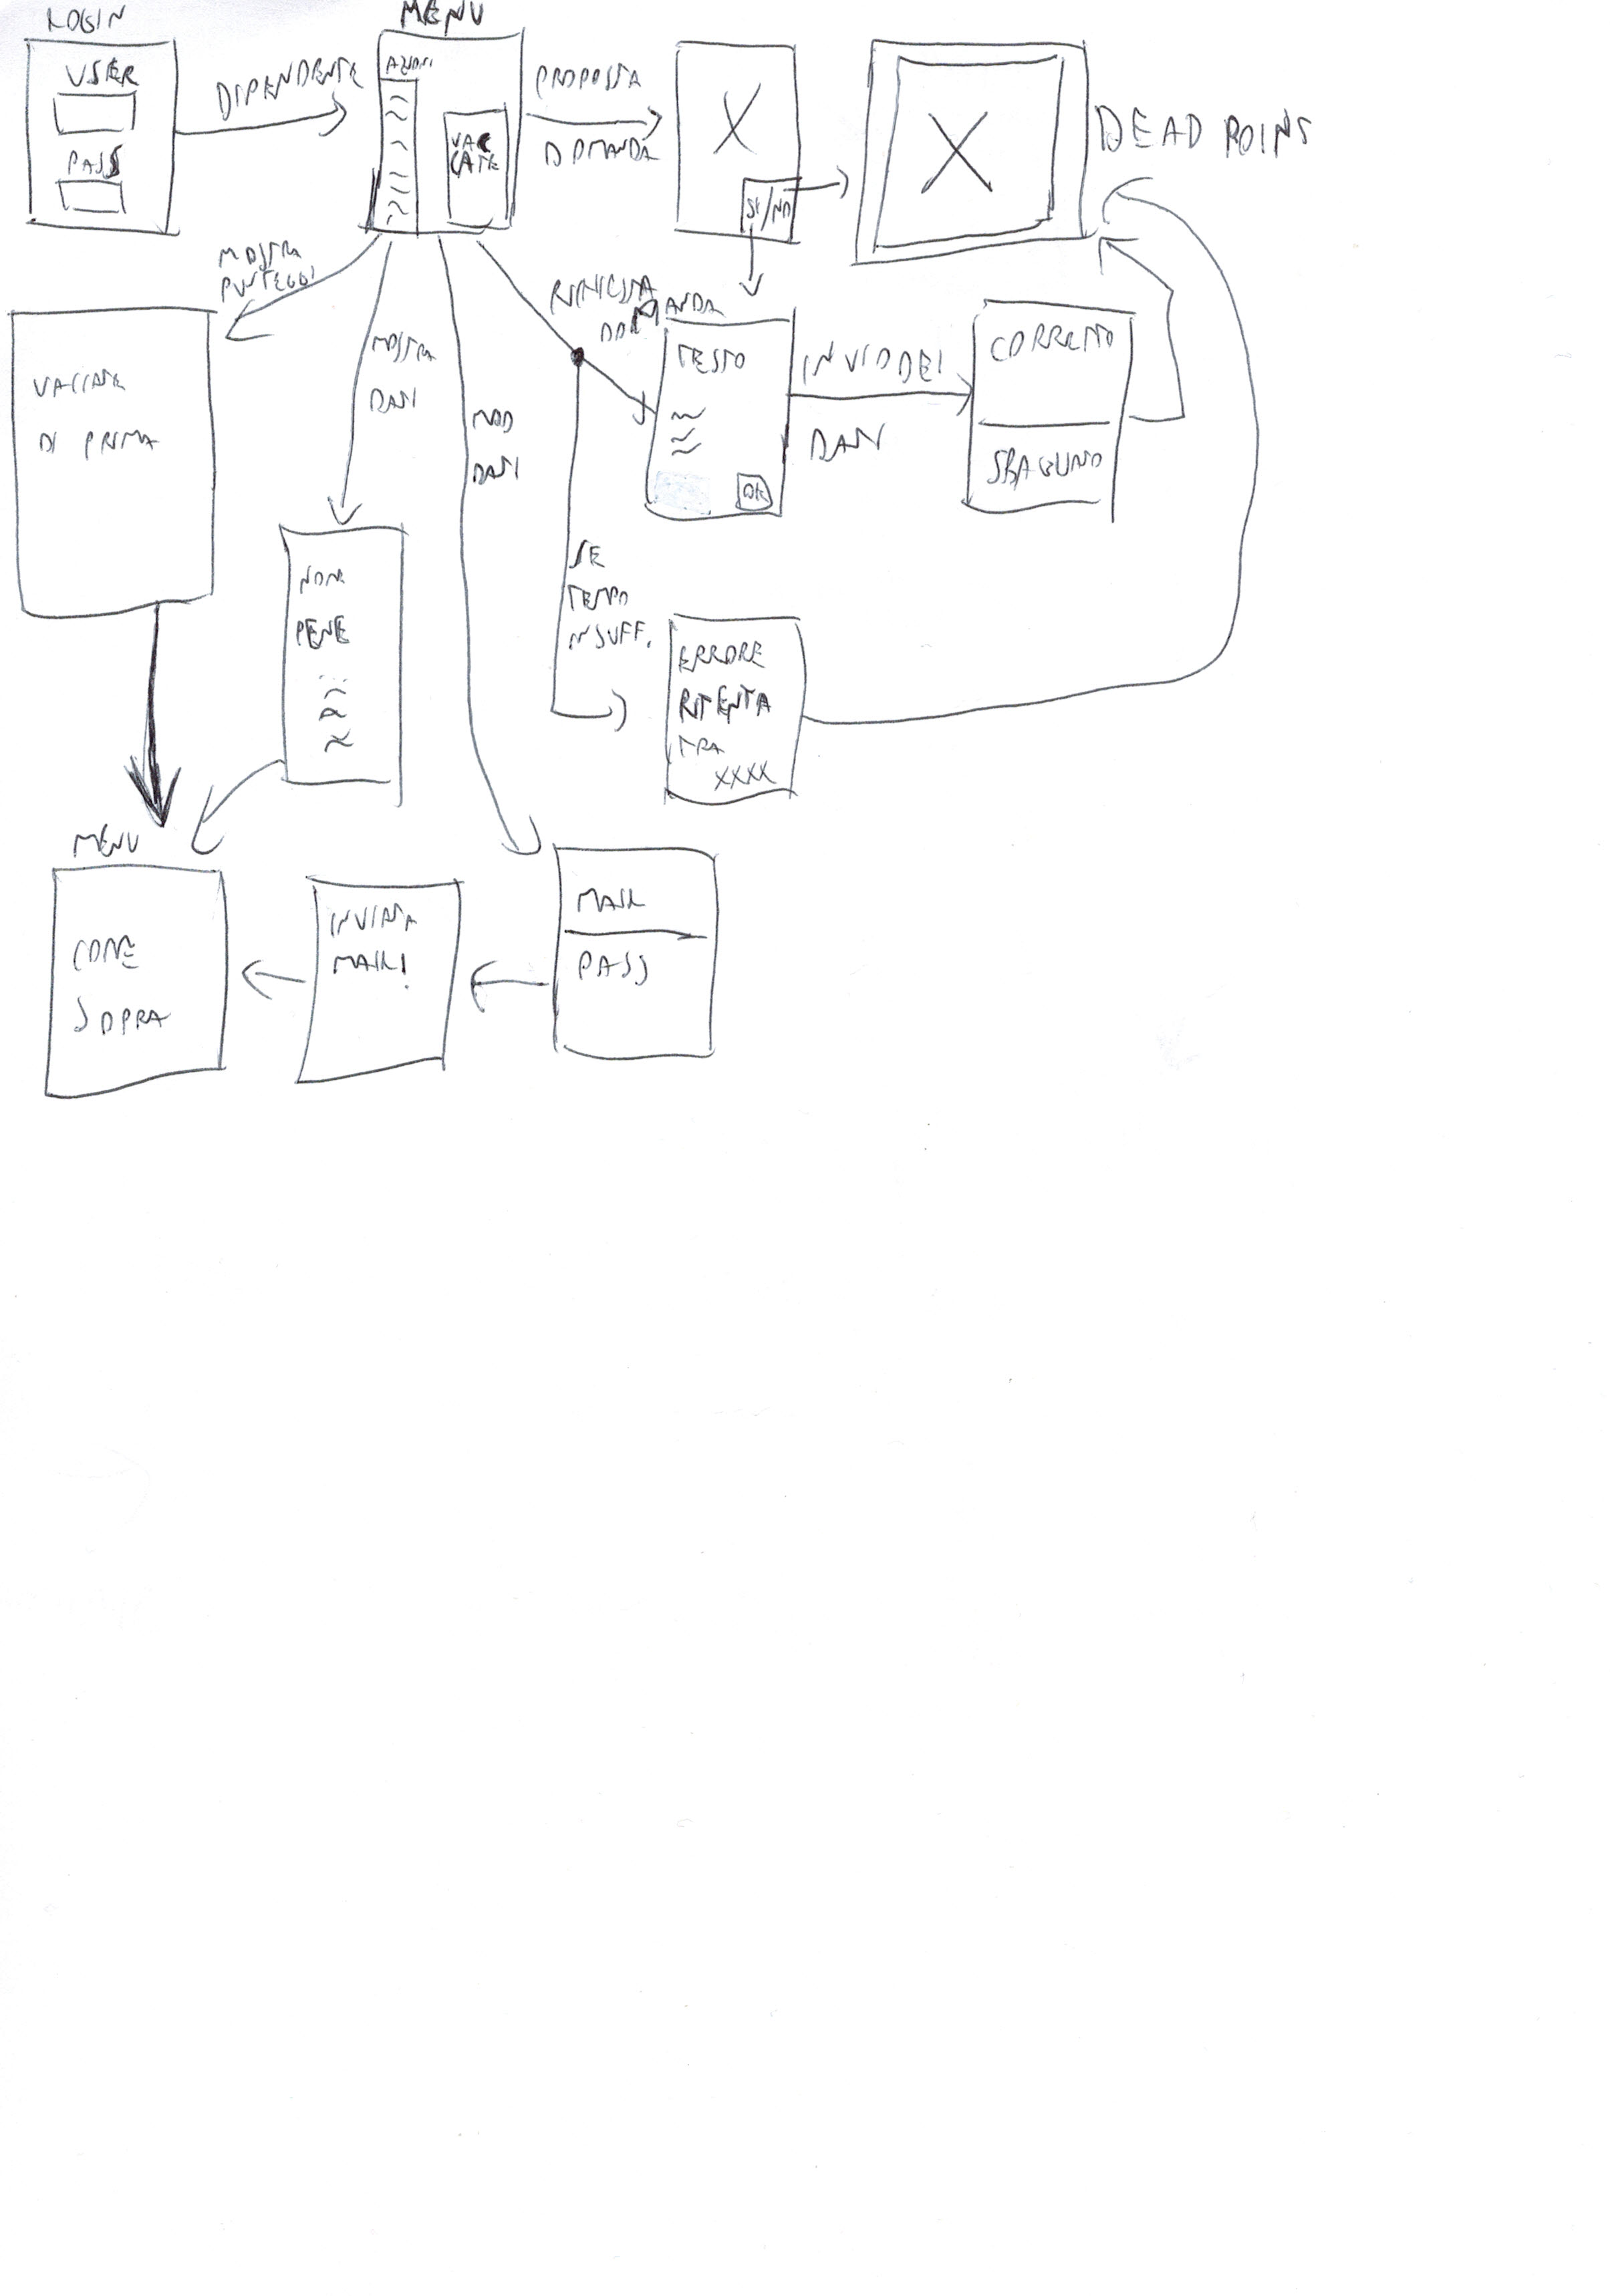 LOGIN
USER
PASS
DIPENDENTE
MENU
AZIONI
VAC
CATE
PROPOSTA
DOMANDA
X
SI/NO
X
DEAD POINS
MOSTRA
PUNTEGGI
VACCATE
DI PRIMA
MOSTRA
DATI
MOD
DATI
RICHIESTA
DOMANDA
TESTO
OK
INVIO DEI
DATI
CORRETTO
SBAGLIATO
NOME
PENE
SE
TEMPO
INSUFF.
ERRORE
RITENTA
TRA
XXXX
MENU
COME
SOPRA
INVIATA
MAIL!
MAIL
PASS